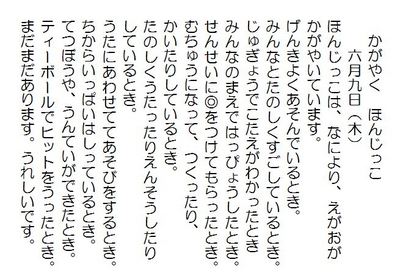 かがやく　ほんじっこ
六月九日（木）
ほんじっこは、なにより、えがおが
かがやいています。
げんきよくあそんでいるとき。
みんなとたのしくすごしているとき。
じゅぎょうでこたえがわかったとき
みんなのまえではっぴょうしたとき。
せんせいに◎をつけてもらったとき。
むちゅうになって、つくったり、
かいたりしているとき。
たのしくうたったりえんそうしたり
しているとき。
うたにあわせててあそびをするとき。
ちからいっぱいはしっているとき。
てつぼうや、うんていができたとき。
ティーボールでヒットをうったとき。
まだまだあります。うれしいです。